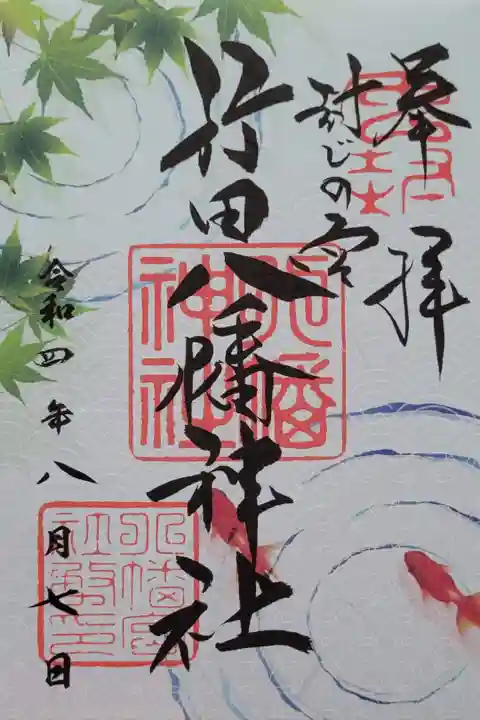 奉拝
封じの宮
行田八幡神社
令和四年八月七日
八幡神社